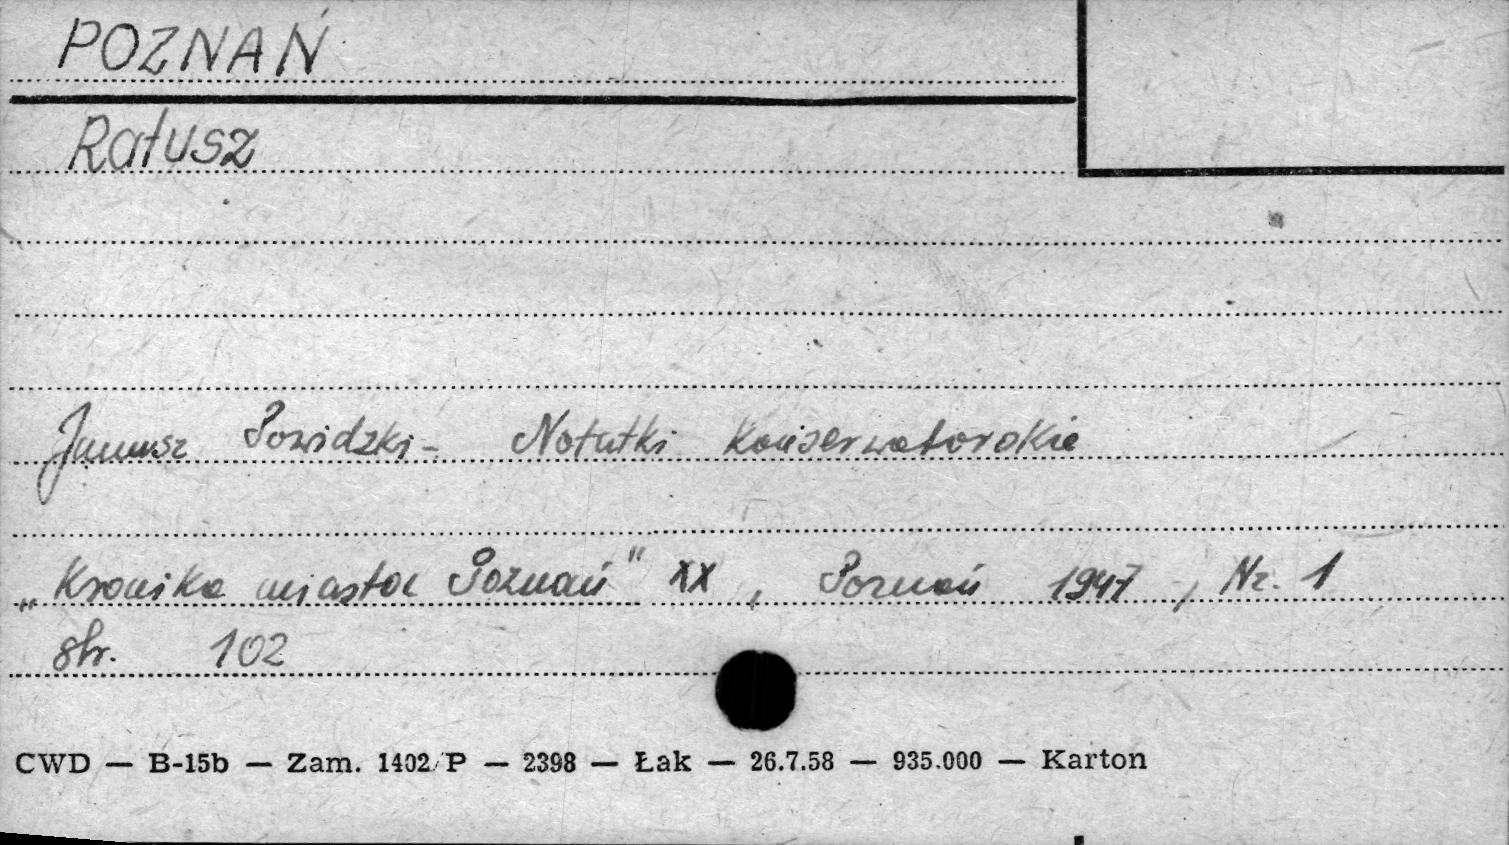 POZNAŃ
Ratusz
Janusz Powidzki - Notatki konserwatorskie
„Kronika miasta Poznań" XX, Poznań 1947, Nr. 1
str. 102
CWD — B-15b — Zam. 1402/P — 2398 — Łak — 26.7.58 — 935.000 — Karton